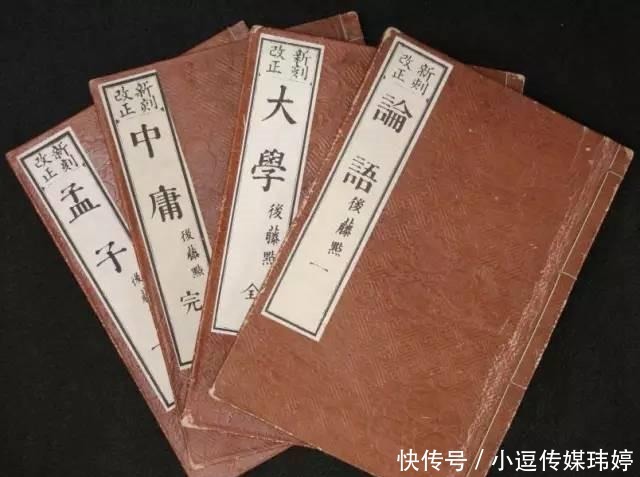 新刻
改正
論語
後藤點
一
新刻
改正
大學
後藤點
全
新刻
改正
中庸
後藤點
完
新刻
改正
孟子
後藤
快传号／小逗传媒玮婷